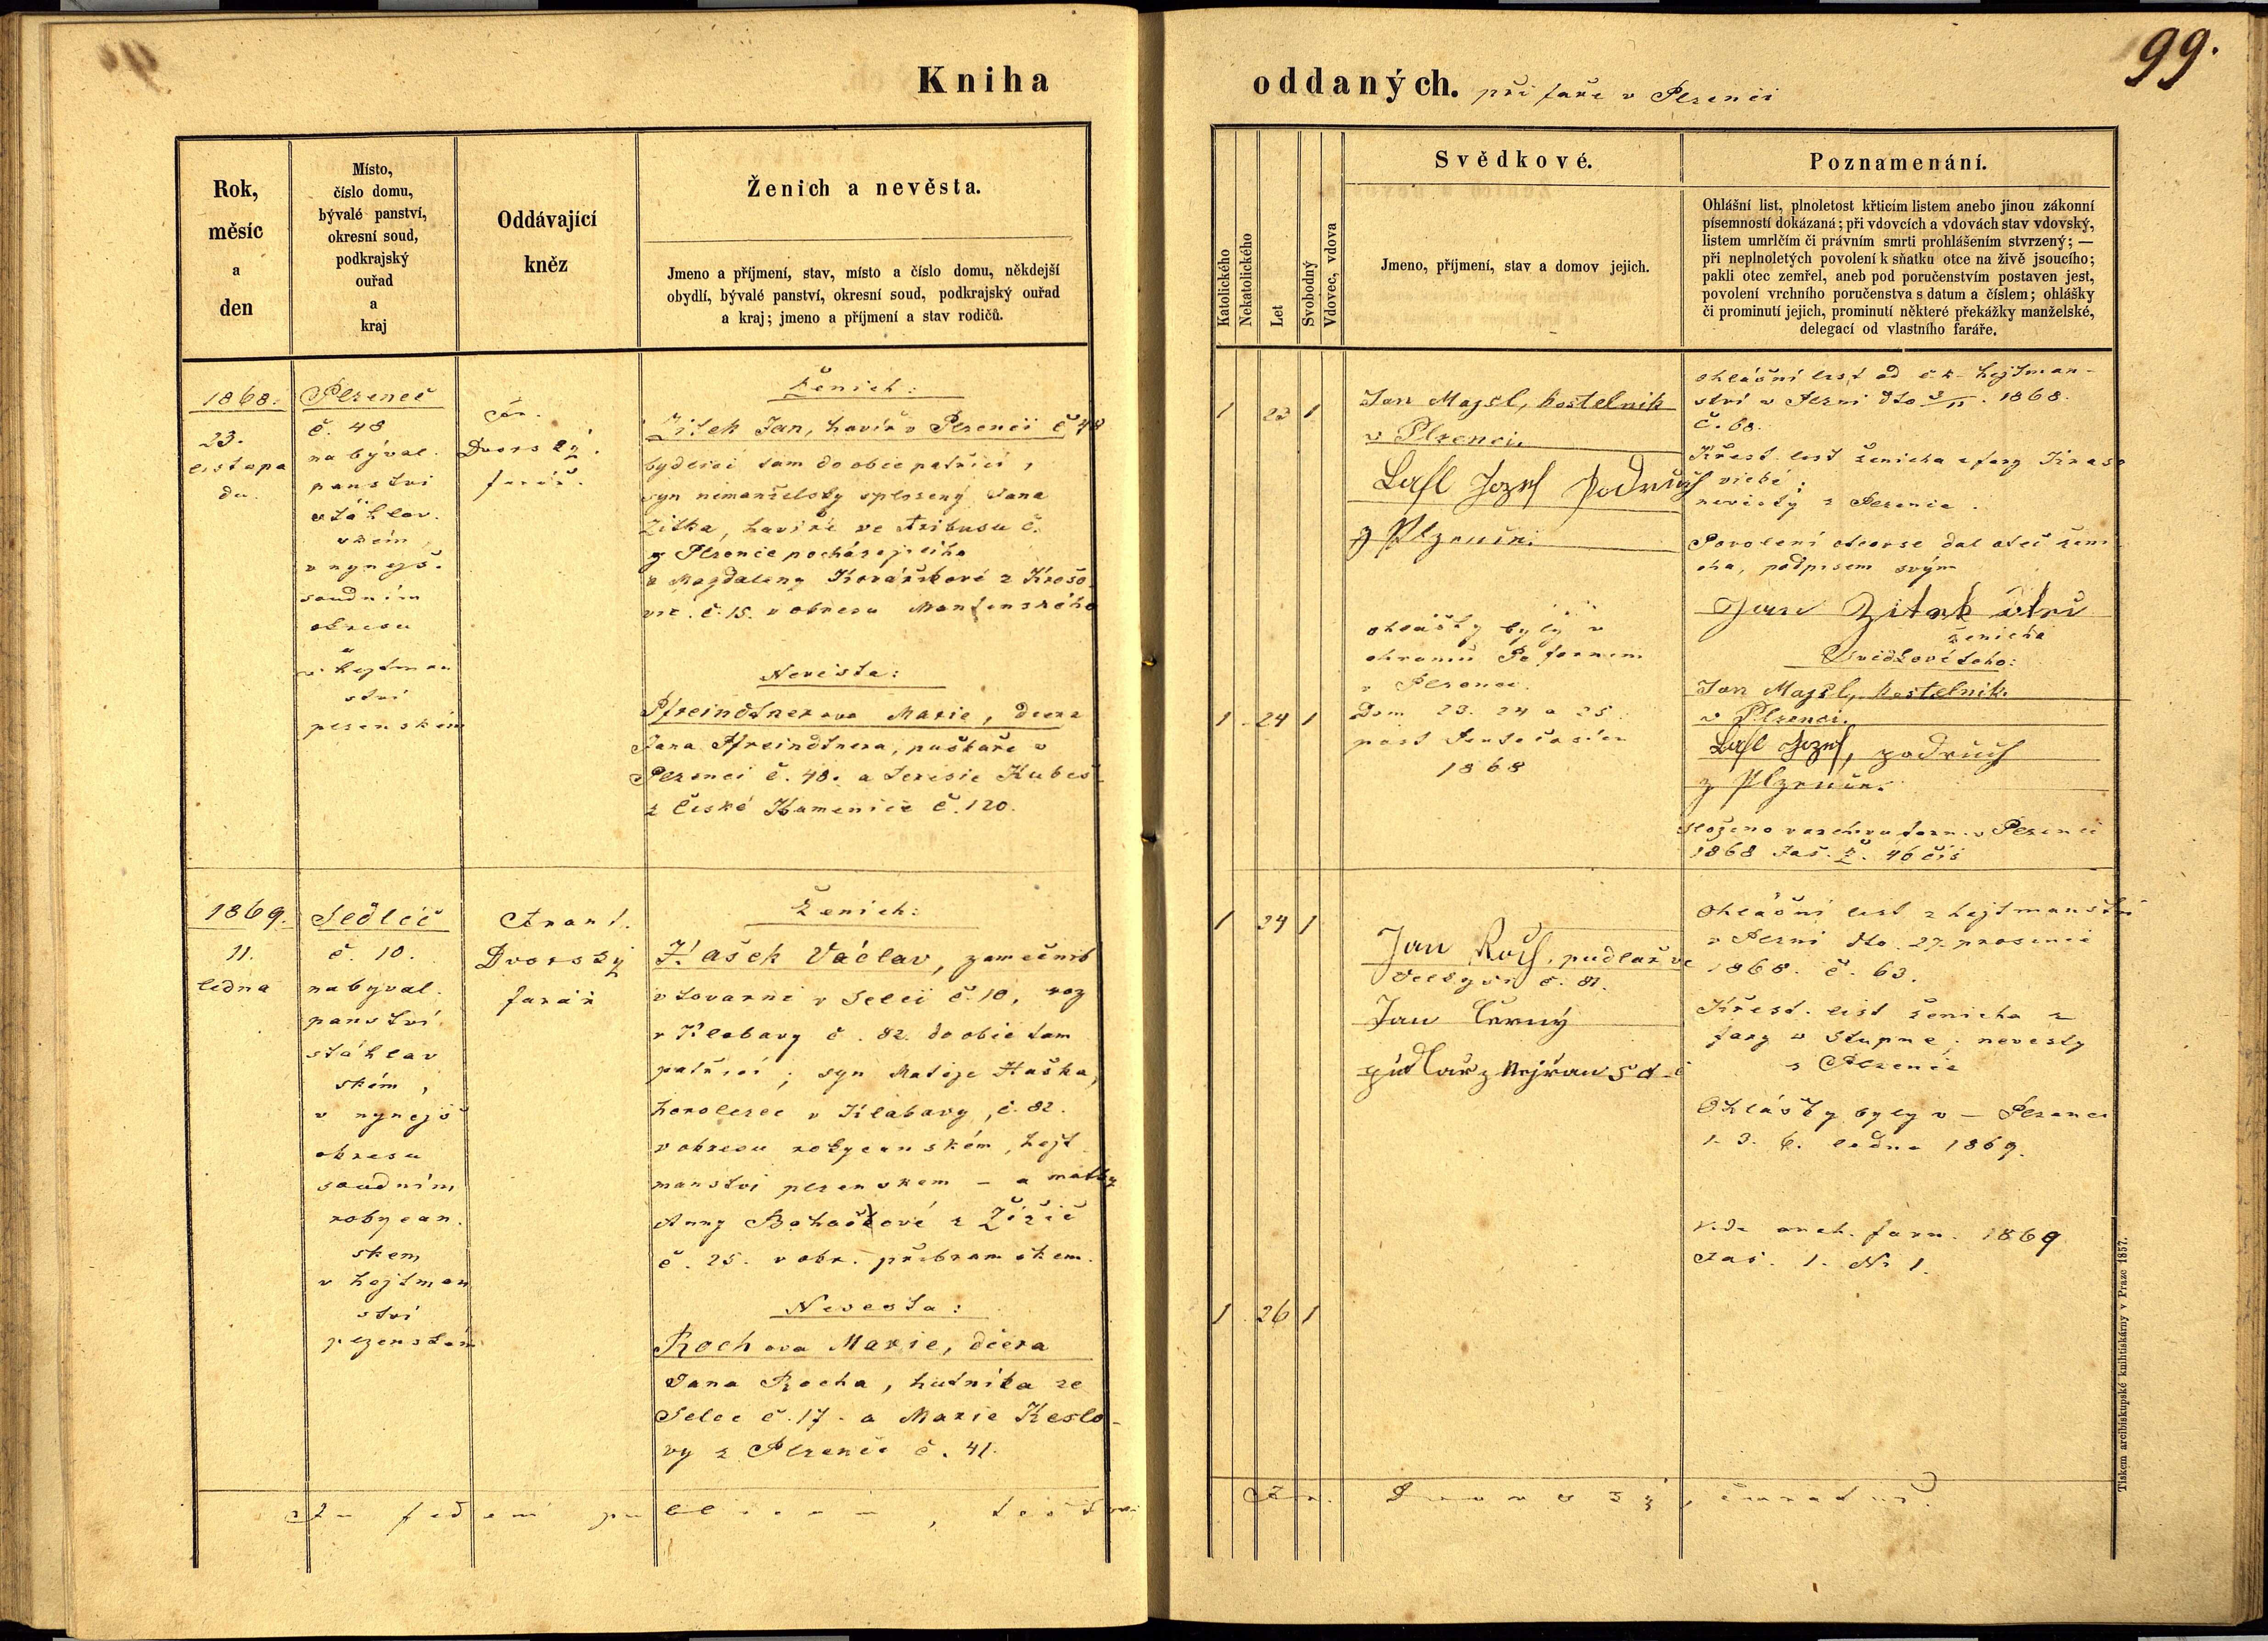 99.
Kniha
oddaných. při faře v Plzenci
Rok,
měsíc
a
den
Místo,
číslo domu,
bývalé panství,
okresní soud,
podkrajský
ouřad
a
kraj
Oddávající
kněz
Ženich a nevěsta.
Jmeno a příjmení, stav, místo a číslo domu, někdejší
obydlí, bývalé panství, okresní soud, podkrajský ouřad
a kraj; jmeno a příjmení a stav rodičů.
Katolického
Nekatolického
Let
Svobodný
Vdovec, vdova
Svědkové.
Jmeno, příjmení, stav a domov jejich.
Poznamenání.
Ohlášní list, plnoletost křticím listem anebo jinou zákonní
písemností dokázaná; při vdovcích a vdovách stav vdovský,
listem umrlčím či právním smrti prohlášením stvrzený; —
při neplnoletých povolení k sňatku otce na živě jsoucího;
pakli otec zemřel, aneb pod poručenstvím postaven jest,
povolení vrchního poručenstva s datum a číslem; ohlášky
či prominutí jejich, prominutí některé překážky manželské,
delegací od vlastního faráře.
1868.
23.
listopa
du.
Plzeneč
č. 48
na býval.
panstvi
stáhlav.
ském,
v nynejš.
soudním
okresu
a
v hejtman
stvi
plzenském
Dvorský.
farář.
Ženich:
Žitek Jan, havíř v Plzenci č 48
bydlící tam do obce patřící,
syn nemanželsky splozený Jana
Žitka, havíře ve č.
z Plzence pocházejicího
a Magdaleny Kovářikové z
č. 15. v okresu
Nevěsta:
Pfreindtner ova Marie, dcera
Jana Pfreindtnera, puškaře v
Plzenci č. 48. a Terezie Kubeš
z České Kamenice č. 120.
1 22 1
1 24 1
Jan Majsl, kostelnik
v Plzenci.
Lašl Jozef Podruch
z Plzence.
ohlášky byly v
chramě farnem
v Plzenci.
Dom 23. 24 a 25.
post
1868
ohlášní list od c. k. hejtman-
ství v Plzni dto 3/11. 1868.
č. 68.
Křest. list ženicha z fary
nevěsty z Plzence.
Povolení otcovse dal otec ženi
cha, podpisem svým
Jan Zitek otec
ženicha
Svědkové toho:
Jan Majsl, kostelnik.
v Plzenci.
Lašl Jozef, podruch
z Plzence.
Složeno v archivu farn. v Plzenci
1868 Fas. 46 čís
1869.
11.
ledna
Sedlec
č. 10.
na byval.
panství
stáhlav
ském,
v nynejš
okresu
soudním
rokycan.
skem,
v hejtman
stvi
plzenském
Frant.
Dvorský
farář
Ženich:
Hašek Václav, zamečník
v tovarne v Selci č. 10, roz
v Klabavy č. 82. do obce tam
patřící; syn Mateje Haška,
v Klabavy, č. 82.
v okresu rokycanském, hejt
manstvi plzenskem — a matky
Anny
č. 25. v okr. příbramském.
Nevesta:
Rochova Marie, dcera
Jana Rocha, hutníka ze
Selce č. 17. a Marie Keslo-
vy z Plzence č. 41.
1 24 1
1 26 1
Jan Roch, pudlař ve
č. 81.
Jan Černý
pudlař z Nejřan
Ohlášní list z hejtmanství
v Plzni dto. 27. prosince
1868. č. 63.
Křest. list ženicha z
fary v Stupne; nevesty
z Plzence
Ohlášky byly v — Plzenci
1. 3. 6. ledna 1869.
Vide arch. farn. 1869
Fas. 1. N 1.
In fidem publicam, testor
Fr. Dvorský, curatus.
Tiskem arcibiskupské knihtiskárny v Praze 1857.